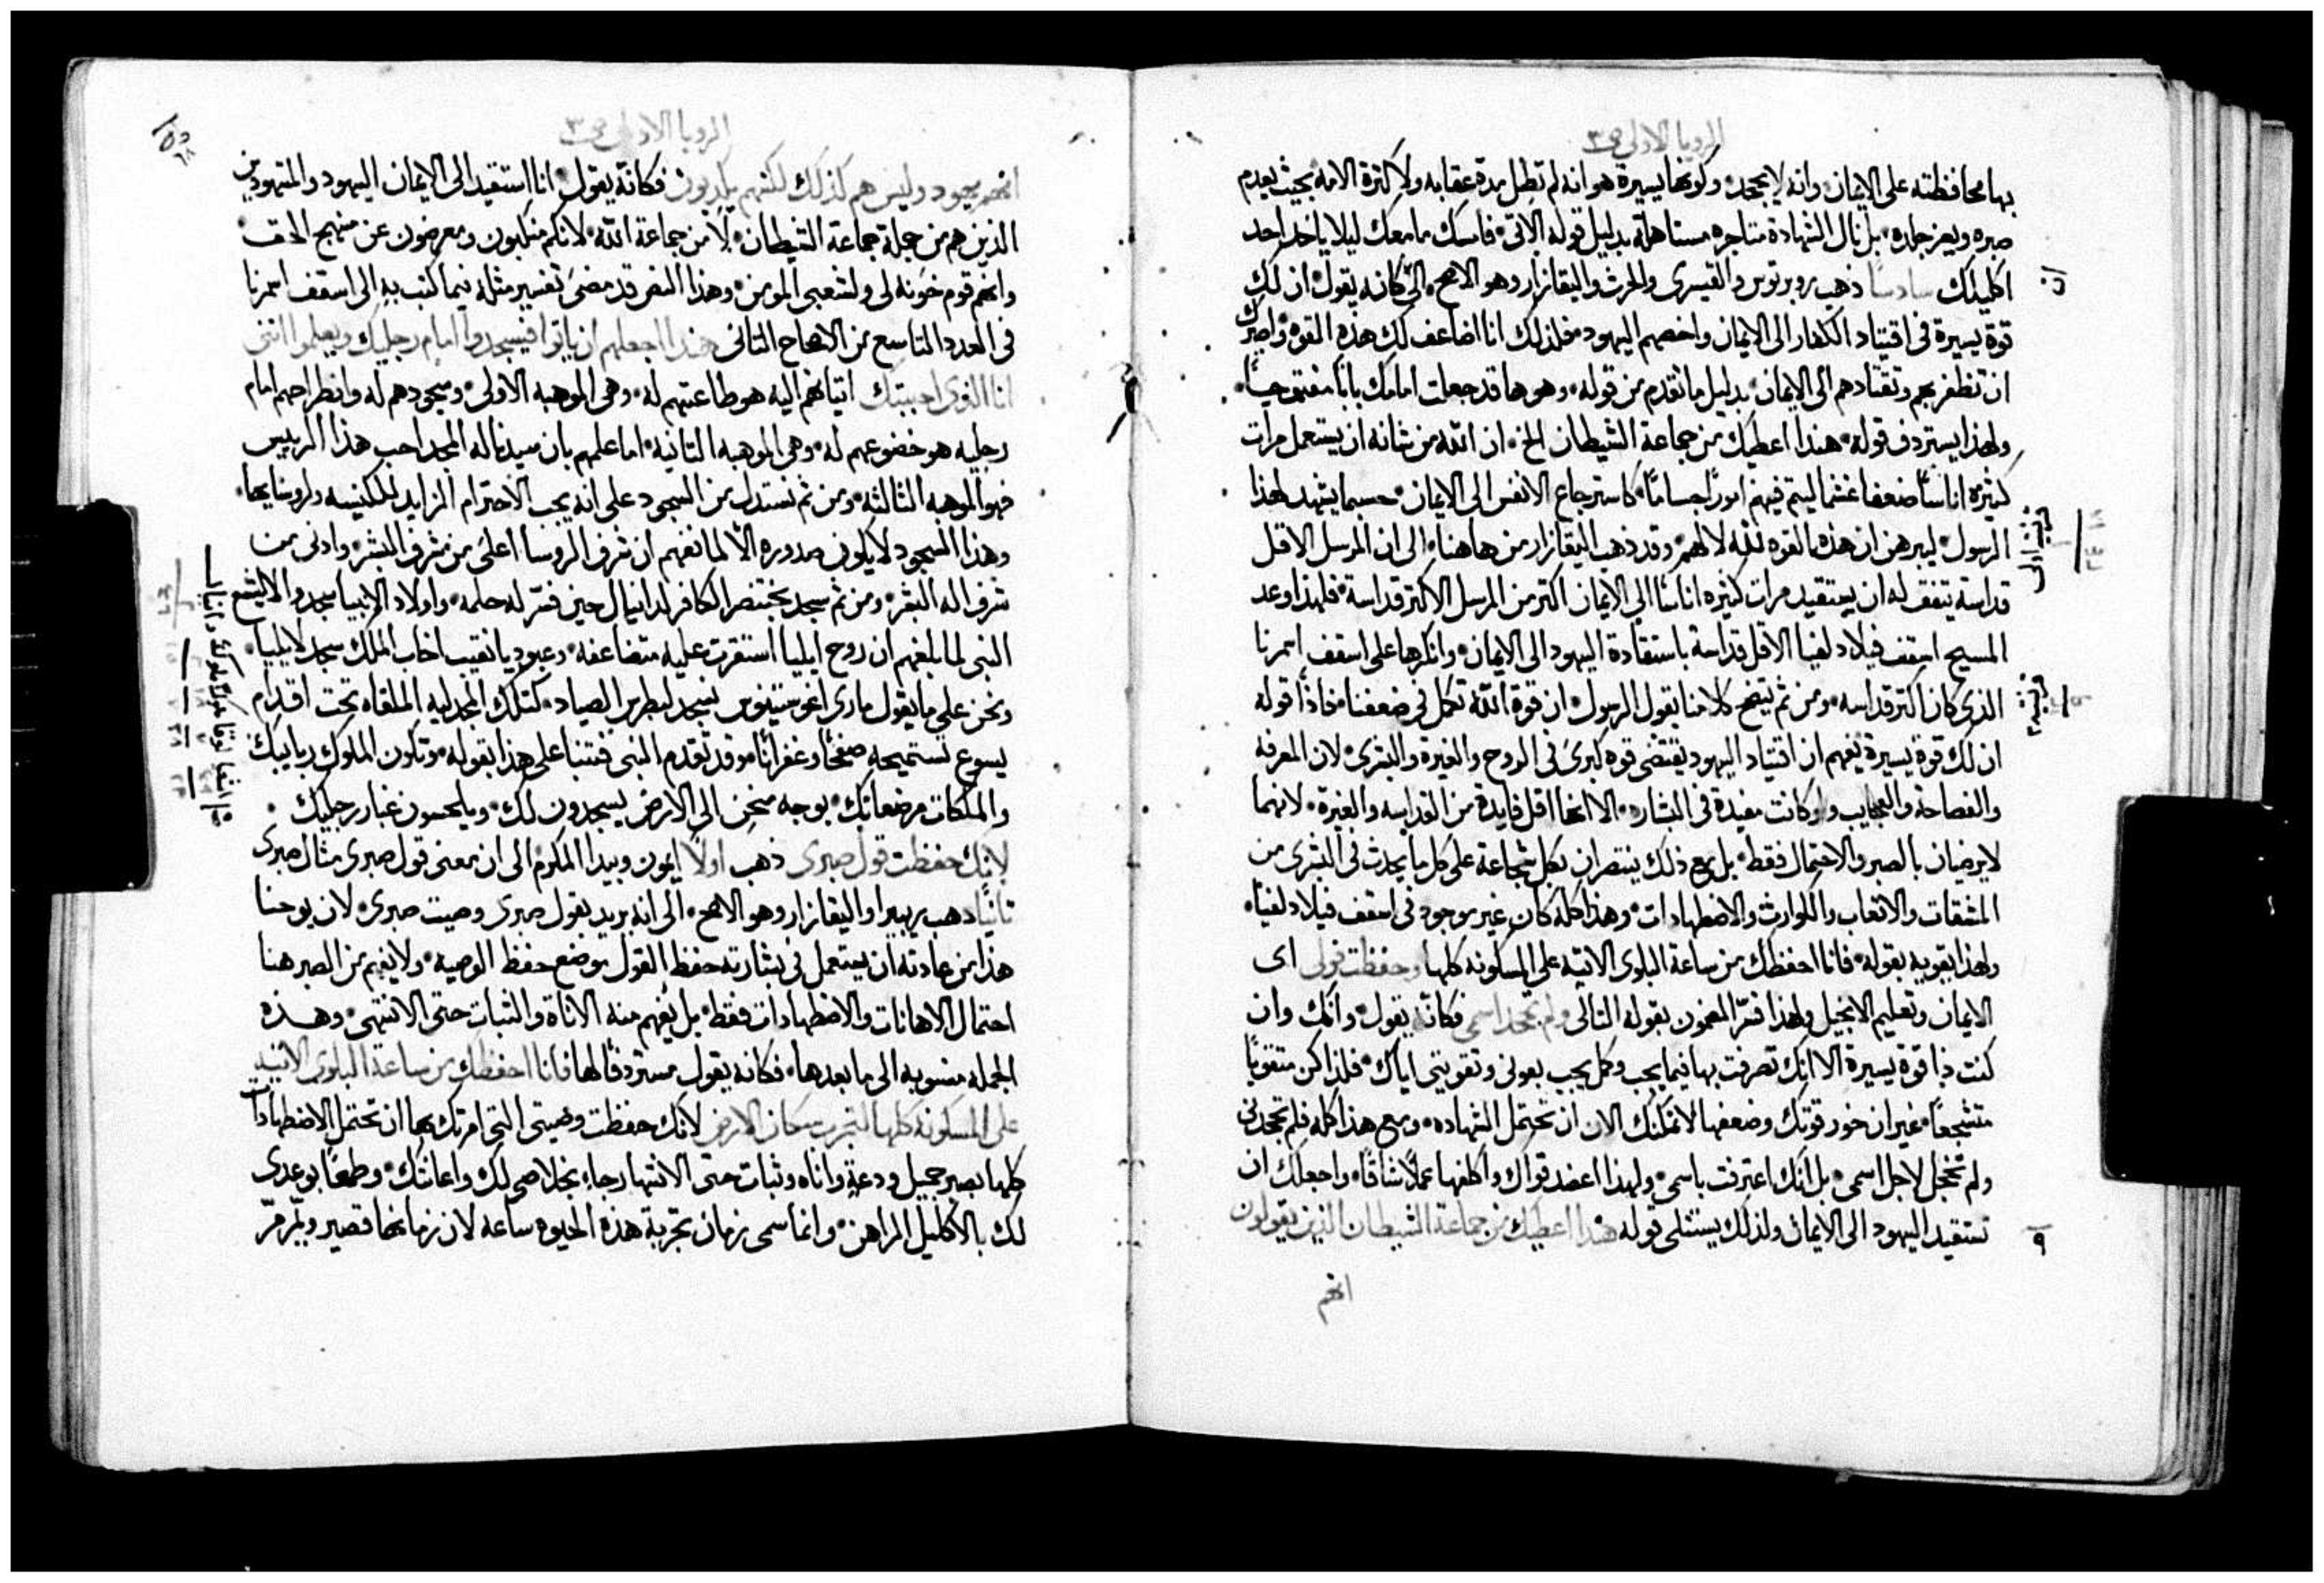 الرويا الاولى ص ٣
بها محافظته على الايمان وانه لا يجحد وكونها يسيرة هو انه لم تطل مدة عقابه ولا كثرة الامه بحيث يعدم
صبره ويعز جلده بل نال الشهادة متاجره مستاهلة بدليل قوله الاتى فامسك ما معك ليلا ياخذ احد
اكليلك سادسا ذهب روبرتوس والقيسرى والحرث واليقازار وهو الاصح الى كانه يقول ان لك
قوة يسيرة فى اقتياد الكفار الى الايمان واخصهم اليهود فلذلك انا اضاعف لك هذه القوه واصيرك
ان تظفر بهم وتقتادهم الى الايمان بدليل ما تقدم من قوله وهو ها قد جعلت امامك بابا مفتوحا
ولهذا يستردف قوله هنذا اعطيك من جماعة الشيطان الخ ان الله من شانه ان يستعمل مرات
كثيرة اناسا ضعفا غشما ليتم فيهم امورا جساما كاسترجاع الانفس الى الايمان حسبما يشهد لهذا
الرسول ليبرهن ان هذه القوه لله لا لهم وقد ذهب اليقازار من هاهنا الى ان المرسل الاقل
قداسة يتفق له ان يستقيد مرات كثيره اناسا الى الايمان اكثر من المرسل الاكثر قداسة فلهذا وعد
المسيح اسقف فيلادلفيا الاقل قداسة باستقادة اليهود الى الايمان وانكرها على اسقف ازمرنا
الذى كان اكثر قداسه ومن ثم يتضح كلامنا بقول الرسول ان قوة الله تكمل فى ضعفنا فاذا قوله
ان لك قوة يسيرة يفهم ان اقتياد اليهود يقتضى قوه كبرى فى الروح والغيرة والبشرى لان المعرفه
والفصاحة والعجايب ولو كانت مفيدة فى البشاره الا انها اقل فايدة من القداسه والغيرة لانهما
لا يرضيان بالصبر والاحتمال فقط بل مع ذلك ينتصران بكل شجاعة على كل ما يحدث فى البشرى من
المشقات والاتعاب والكوارث والاضطهادات وهذا كله كان غير موجود فى اسقف فيلادلفيا
ولهذا يقويه بقوله فانا احفظك من ساعة البلوى الاتيه على المسكونه كلها وحفظت قولى اى
الايمان وتعليم الانجيل ولهذا فسر المضمون بقوله التالى ولم تجحد اسمى فكانه يقول وانك وان
كنت ذا قوة يسيرة الا انك تصرفت بها فيما يجب وكما يجب بعونى وتقويتى اياك فلذا كن متقويا
متشجعا غير ان خور قوتك وضعفها لا تمكنك الان ان تحتمل الشهاده ومع هذا كله فلم تجحدنى
ولم تخجل لاجل اسمى بل انك اعترفت باسمى ولهذا اعضد قواك واكلفها عملا شاقا واجعلك ان
تستقيد اليهود الى الايمان ولذلك يستتلى قوله هنذا اعطيك من جماعة الشيطان الذين يقولون
٩
انهم
الرويا الاولى ص ٣
انهم يهود وليس هم كذلك لكنهم يكذبون فكانه يقول انا استقيد الى الايمان اليهود والمتهودين
الذين هم من جملة جماعة الشيطان لا من جماعة الله لانكم متكبون ومعرضون عن منهج الحق
وانهم قوم خونه لى ولشعبى المومن وهذا النص قد مضى تفسير مثله فيما كتب به الى اسقف ازمرنا
فى العدد التاسع من الاصحاح الثانى هنذا اجعلهم ان ياتوا فيسجدوا امام رجليك ويعلموا اننى
انا الذى احببتك اتيانهم اليه هو طاعتهم له وهى الموهبه الاولى وسجودهم له وانطراحهم امام
رجليه هو خضوعهم له وهى الموهبه الثانيه اما علمهم بان سيدنا له المجد احب هذا الرييس
فهو الموهبه الثالثه ومن ثم نستدل من السجود على انه يجب الاحترام الزايد للكنيسه ولروسايها
وهذا السجود لا يكون صدوره الا لما نفهم ان شرف الروسا اعلى من شرف البشر وادنى من
شرف اله البشر ومن ثم سجد بختنصر الكافر لدانيال حين فسر له حلمه واولاد الانبيا سجدوا لاليشع
النبى لما بلغهم ان روح ايليا استقرت عليه متضاعفه وعبوديا نقيب اخاب الملك سجد لايليا
ونحن على ما يقول مارى اغوستينوس نسجد لبطرس الصياد كتلك المجدليه الملقاه تحت اقدام
يسوع تستميحه صفحا وغفرانا وقد تقدم النبى فتنبا على هذا بقوله وتكون الملوك ربايبك
والملكات مرضعاتك بوجه منحن الى الارض يسجدون لك ويلحسون غبار رجليك
لانك حفظت قول صبرى ذهب اولا ايمون وبيدا المكرم الى ان معنى قول صبرى مثال صبرى
ثانيا ذهب ريبيرا واليقازار وهو الاصح الى انه يريد بقول صبرى وصيت صبرى لان يوحنا
هذا من عادته ان يستعمل فى بشارته حفظ القول موضع حفظ الوصيه ولا يفهم من الصبر هنا
احتمال الاهانات والاضطهادات فقط بل يفهم منه الاناة والثبات حتى الانتهى وهذه
الجمله منسوبه الى ما بعدها فكانه يقول مستردفا لها فانا احفظك من ساعة البلوى الاتيه
على المسكونه كلها لتجرب سكان الارض لانك حفظت وصيتى التى امرتك بها ان تحتمل الاضطهادات
كلها بصبر جميل ودعة واناه وثبات حتى الانتها رجاء بخلاصى لك واعانتك وطمعا بوعدى
لك بالاكليل الراهن وانما سمى زمان تجربة هذه الحيوه ساعه لان زمانها قصير ويمر مر